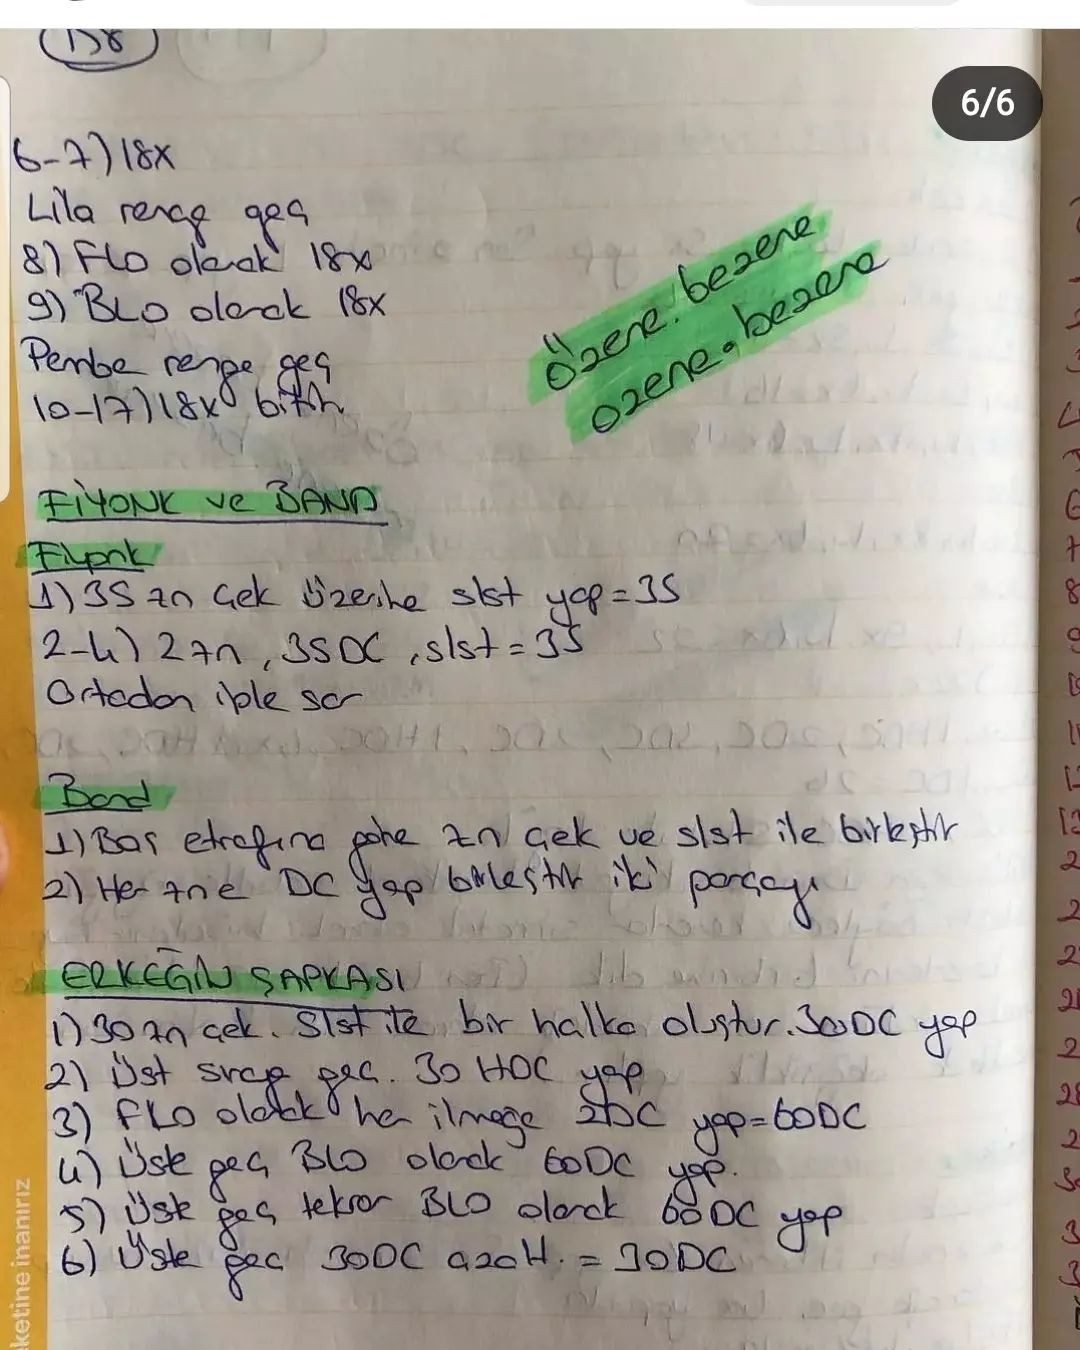 138
6/6
6-7) 18x
Lila renge geç
8) FLO olarak 18x
9) BLO olarak 18x
Pembe renge geç
10-17) 18x bitir
Özene.bezene
ozene.bezene
FİYONK ve BAND
Fiyonk
1) 35 zn çek üzerine slst yap = 35
2-4) 2 zn, 35 DC, slst = 35
Ortadan iple sar
Band
1) Baş etrafına göre zn çek ve slst ile birleştir
2) Her zn'e DC yap birleştir iki parçayı
ERKEĞİN ŞAPKASI
1) 30 zn çek. Slst ile bir halka oluştur. 30 DC yap
2) Üst sıraya geç. 30 HDC yap
3) FLO olarak her ilmeğe 2DC yap = 60DC
4) Üste geç BLO olarak 60DC yap.
5) Üste geç tekrar BLO olarak 60DC yap
6) Üste geç 30DC azalt. = 30DC
ketine inanırız